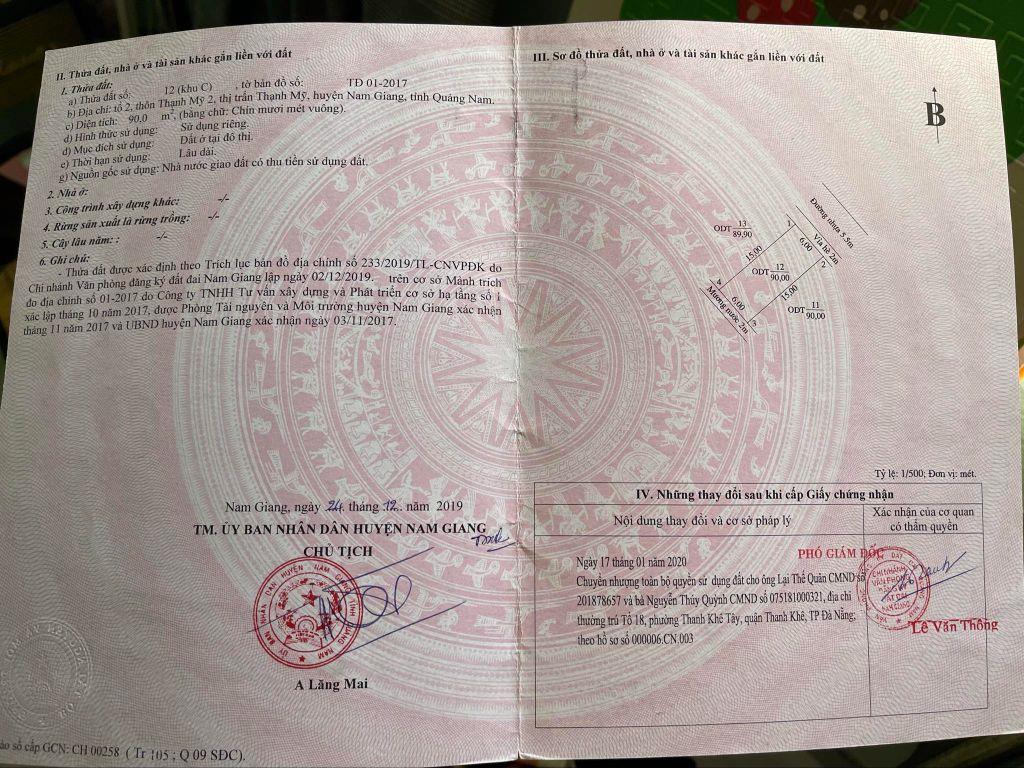 II. Thửa đất, nhà ở và tài sản khác gắn liền với đất
1. Thửa đất:
a) Thửa đất số: 12 (khu C) , tờ bản đồ số: TĐ 01-2017
b) Địa chỉ: tổ 2, thôn Thạnh Mỹ 2, thị trấn Thạnh Mỹ, huyện Nam Giang, tỉnh Quảng Nam.
c) Diện tích: 90,0 m², (bằng chữ: Chín mươi mét vuông).
d) Hình thức sử dụng: Sử dụng riêng.
đ) Mục đích sử dụng: Đất ở tại đô thị.
e) Thời hạn sử dụng: Lâu dài.
g) Nguồn gốc sử dụng: Nhà nước giao đất có thu tiền sử dụng đất.
2. Nhà ở:
3. Công trình xây dựng khác: -/-
4. Rừng sản xuất là rừng trồng: -/-
5. Cây lâu năm: : -/-
6. Ghi chú:
- Thửa đất được xác định theo Trích lục bản đồ địa chính số 233/2019/TL-CNVPĐK do
Chi nhánh Văn phòng đăng ký đất đai Nam Giang lập ngày 02/12/2019. trên cơ sở Mảnh trích
đo địa chính số 01-2017 do Công ty TNHH Tư vấn xây dựng và Phát triển cơ sở hạ tầng số 1
xác lập tháng 10 năm 2017, được Phòng Tài nguyên và Môi trường huyện Nam Giang xác nhận
tháng 11 năm 2017 và UBND huyện Nam Giang xác nhận ngày 03/11/2017.
Nam Giang, ngày 24 tháng 12 năm 2019
TM. ỦY BAN NHÂN DÂN HUYỆN NAM GIANG
CHỦ TỊCH
A Lăng Mai
số cấp GCN: CH 00258 ( Tr 105 ; Q 09 SĐC).
III. Sơ đồ thửa đất, nhà ở và tài sản khác gắn liền với đất
B
Đường nhựa 5.5m
Vỉa hè 2m
ODT 13
89,90
1
6,00
2
15,00
ODT 12
90,00
15,00
4
6,00
3
Mương nước 2m
ODT 11
90,00
Tỷ lệ: 1/500; Đơn vị: mét.
IV. Những thay đổi sau khi cấp Giấy chứng nhận
Nội dung thay đổi và cơ sở pháp lý
Xác nhận của cơ quan
có thẩm quyền
Ngày 17 tháng 01 năm 2020
PHÓ GIÁM ĐỐC
Chuyển nhượng toàn bộ quyền sử dụng đất cho ông Lại Thế Quản CMND số
201878657 và bà Nguyễn Thúy Quỳnh CMND số 075181000321, địa chỉ
thường trú Tổ 18, phường Thanh Khê Tây, quận Thanh Khê, TP Đà Nẵng,
theo hồ sơ số 000006.CN.003
Lê Văn Thông